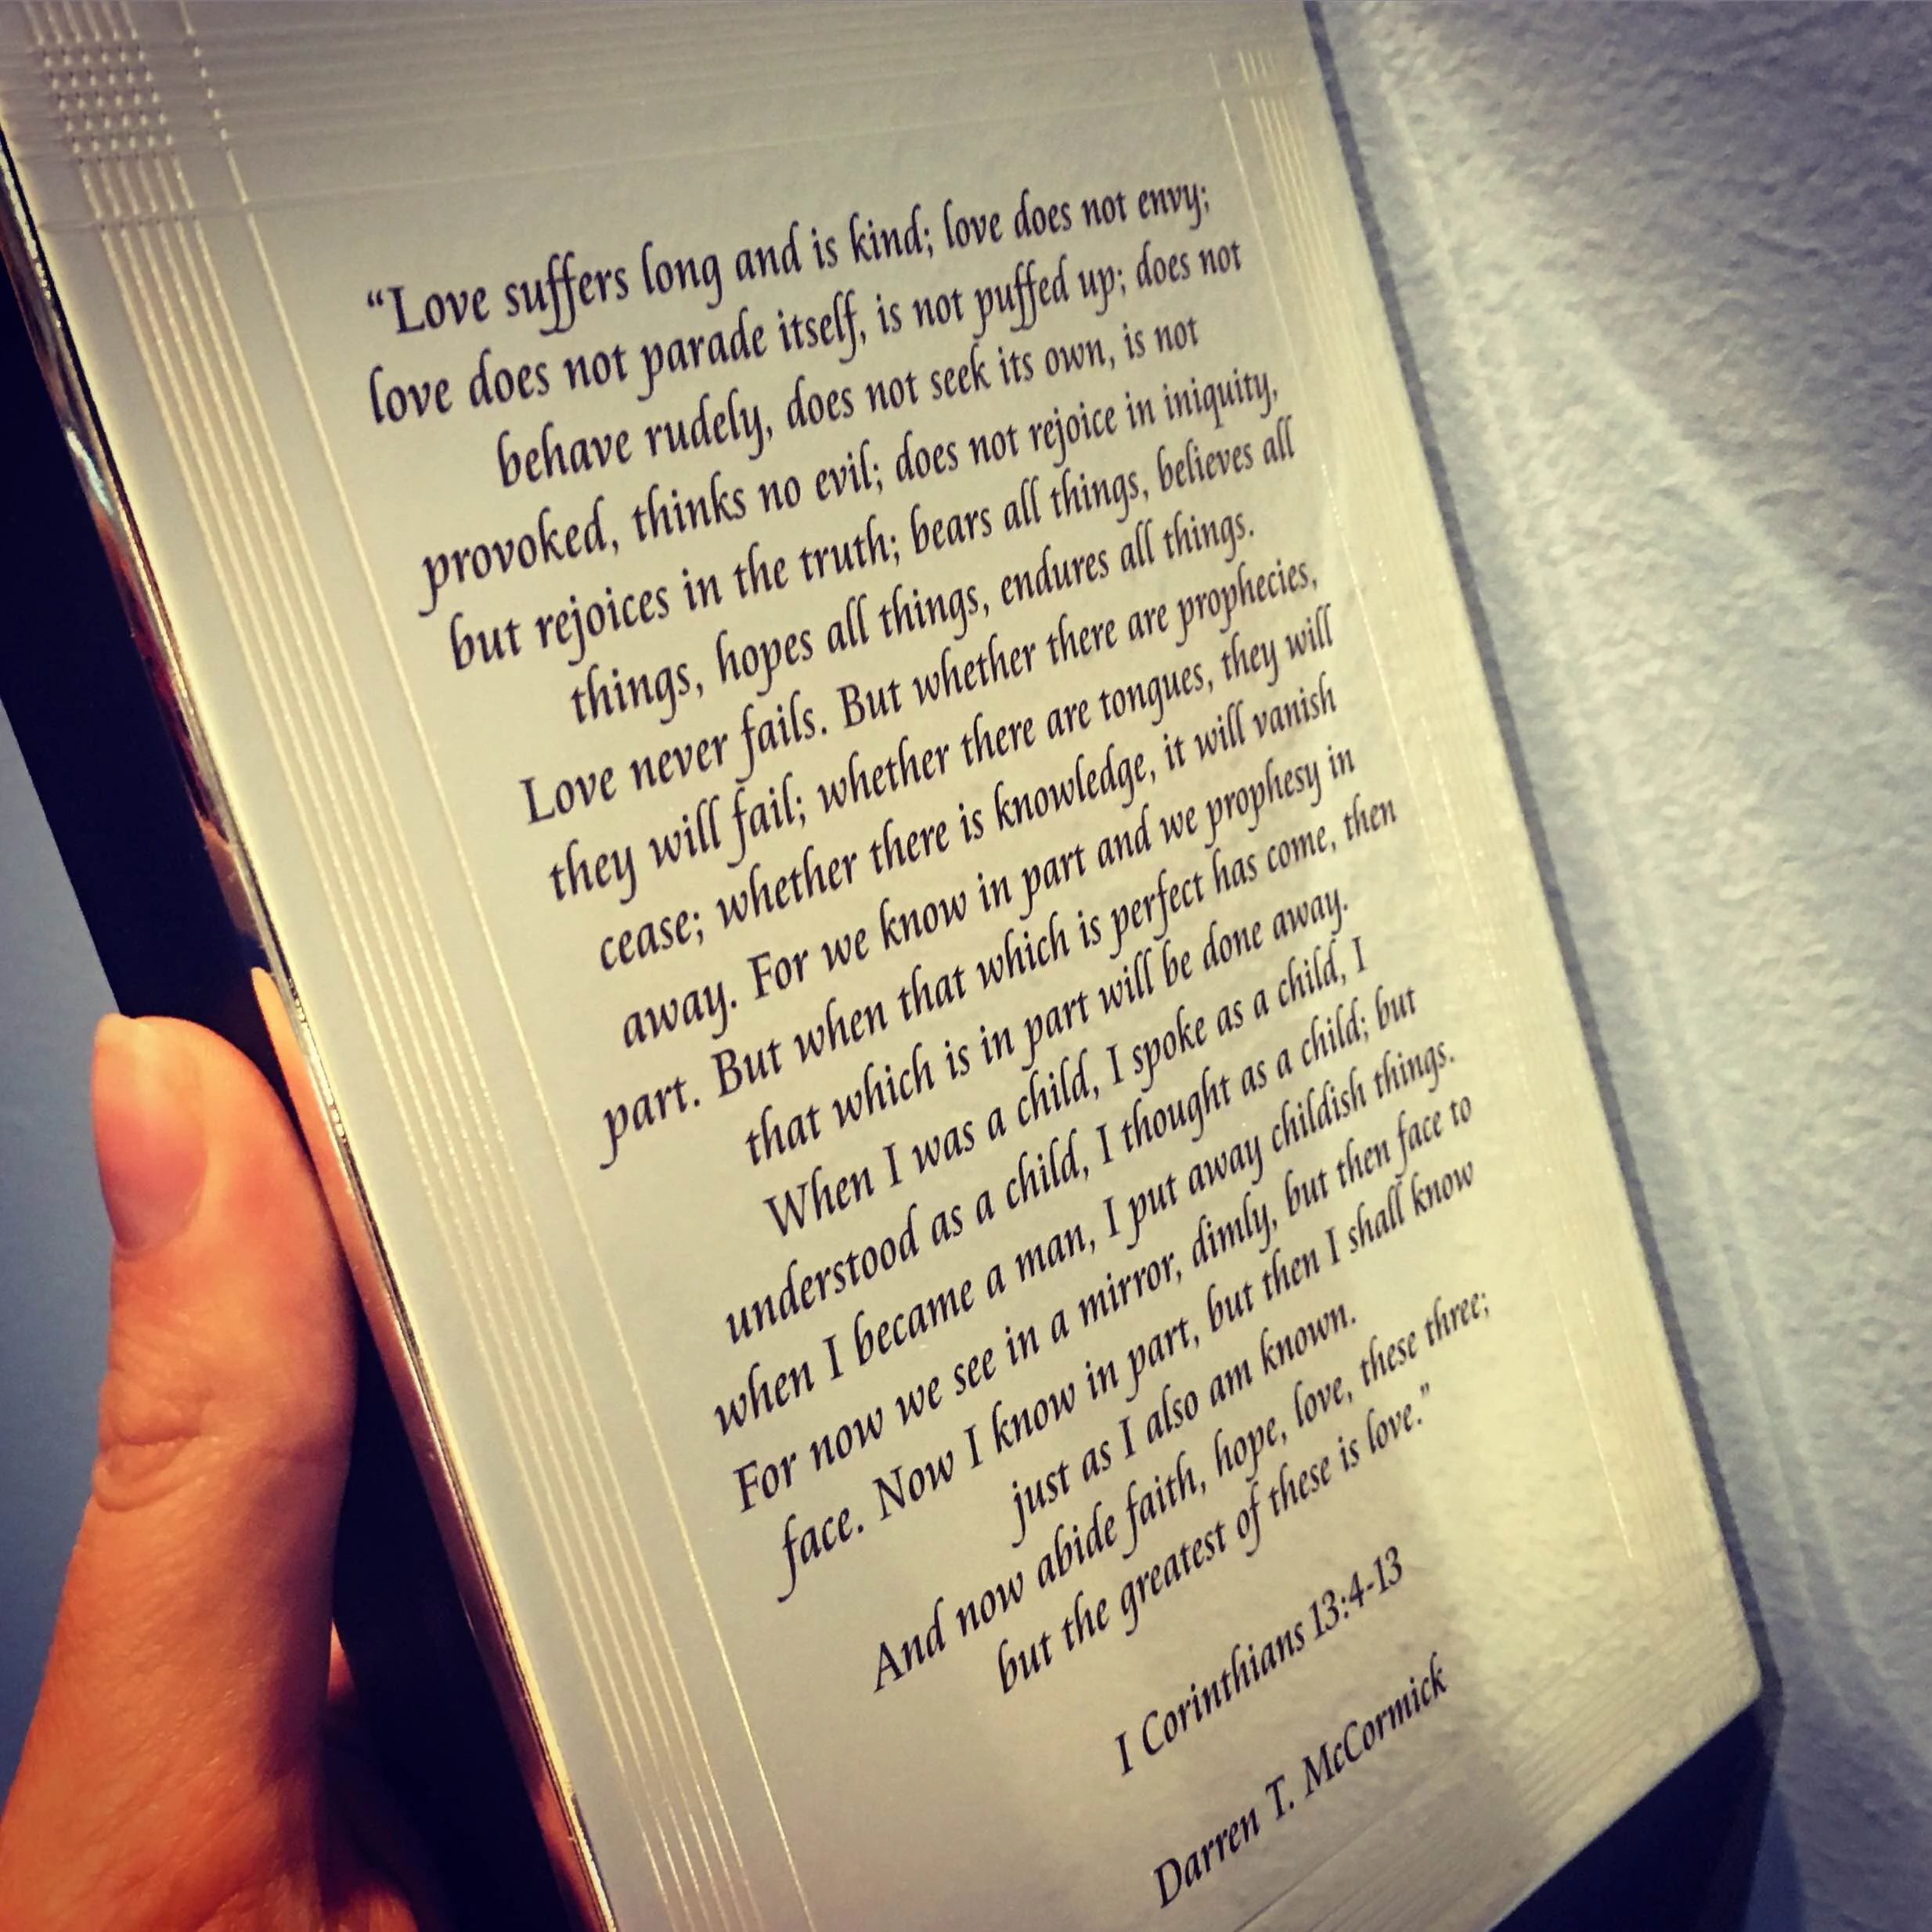 “Love suffers long and is kind; love does not envy;
love does not parade itself, is not puffed up; does not
behave rudely, does not seek its own, is not
provoked, thinks no evil; does not rejoice in iniquity,
but rejoices in the truth; bears all things, believes all
things, hopes all things, endures all things.
Love never fails. But whether there are prophecies,
they will fail; whether there are tongues, they will
cease; whether there is knowledge, it will vanish
away. For we know in part and we prophesy in
part. But when that which is perfect has come, then
that which is in part will be done away.
When I was a child, I spoke as a child, I
understood as a child, I thought as a child; but
when I became a man, I put away childish things.
For now we see in a mirror, dimly, but then face to
face. Now I know in part, but then I shall know
just as I also am known.
And now abide faith, hope, love, these three;
but the greatest of these is love.”
I Corinthians 13:4-13
Darren T. McCormick